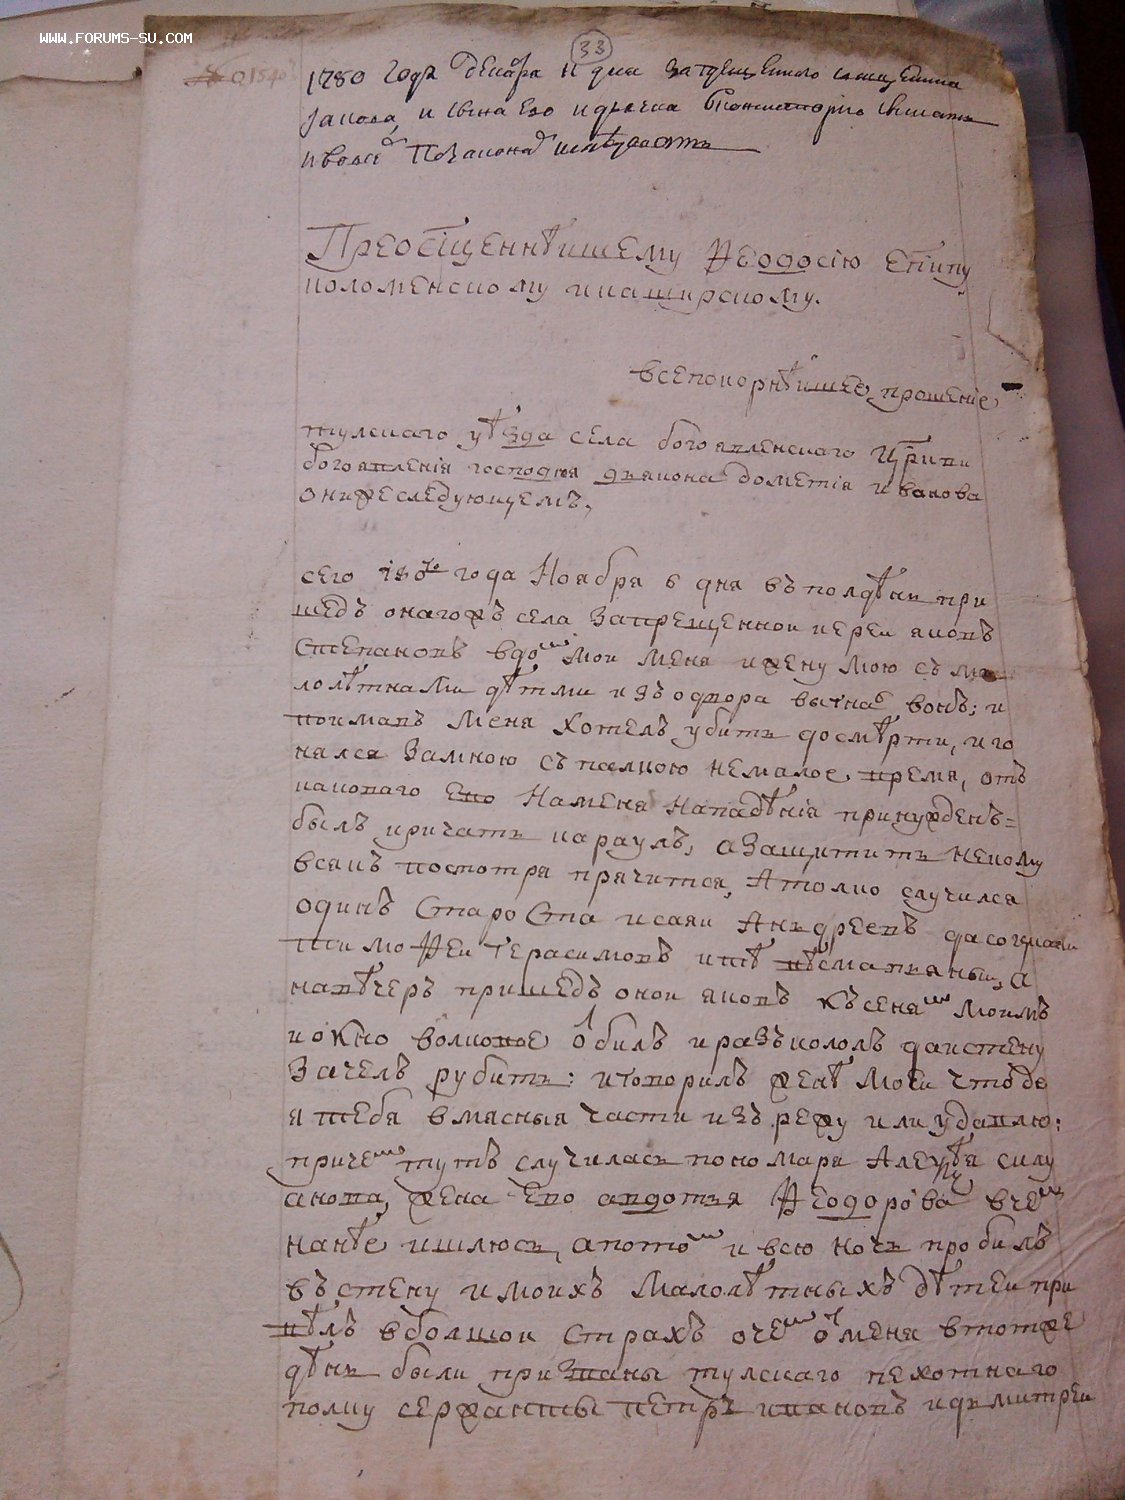 WWW.FORUMS-SU.COM
33
1780 года декабря 11 дня запрещеннаго священника
Iакова, и сына его и дьячка в консисторiю сыскать
и въ
Преосщеннѣишему Ѳеодосiю епiпу
коломенскому и каширскому.
всепокорнѣишее прошенiе
тулскаго уѣзда села богоявленскаго цркви
богоявленiя господня дьякона дометiя иванова
о нижеследующемъ,
сего 780 года Ноября 6 дня въ полдѣни при
шедъ онагожъ села Запрещеннои иереи яковъ
Степановъ в дом мои меня и жену мою съ ма
лолѣтнами дѣтми изъ одвора выгнаб вонъ; и
поимавъ меня хотелъ убить до смѣрти, и го
нялся Замною съ палкою немалое время, отъ
каковаго ево на меня нападѣнiя принужденъ=
былъ кричать караулъ, а защитить некому
всякъ посмотря прячится, А толко случился
одинъ СтароСта исаяи Анъдреевъ да соцкаи
тимоѲеи герасимовъ и тѣ вѣсма пьяныи, а
навѣчеръ пришедъ онои яковъ къ сеням моимъ
и окно волковое обилъ и разъкололъ да и стену
Зачелъ рубить: и говорилъ женѣ моеи что де
я тебя в мясныя части изъ режу или удавлю:
причем тутъ случилась пономаря Алеѯѣя силу
анова, жена ево авдотья Ѳеодорова в чем
на нѣе и шлюсь, а потом и всю ночь пробилъ
въ стену и моихъ малолѣтныхъ дѣтеи при
вѣлъ в болшои страхъ о чем о меня в тотже
дѣнь были призваны тулскаго пехотнаго
полку сержанты петръ ивановъ и дьмитреи